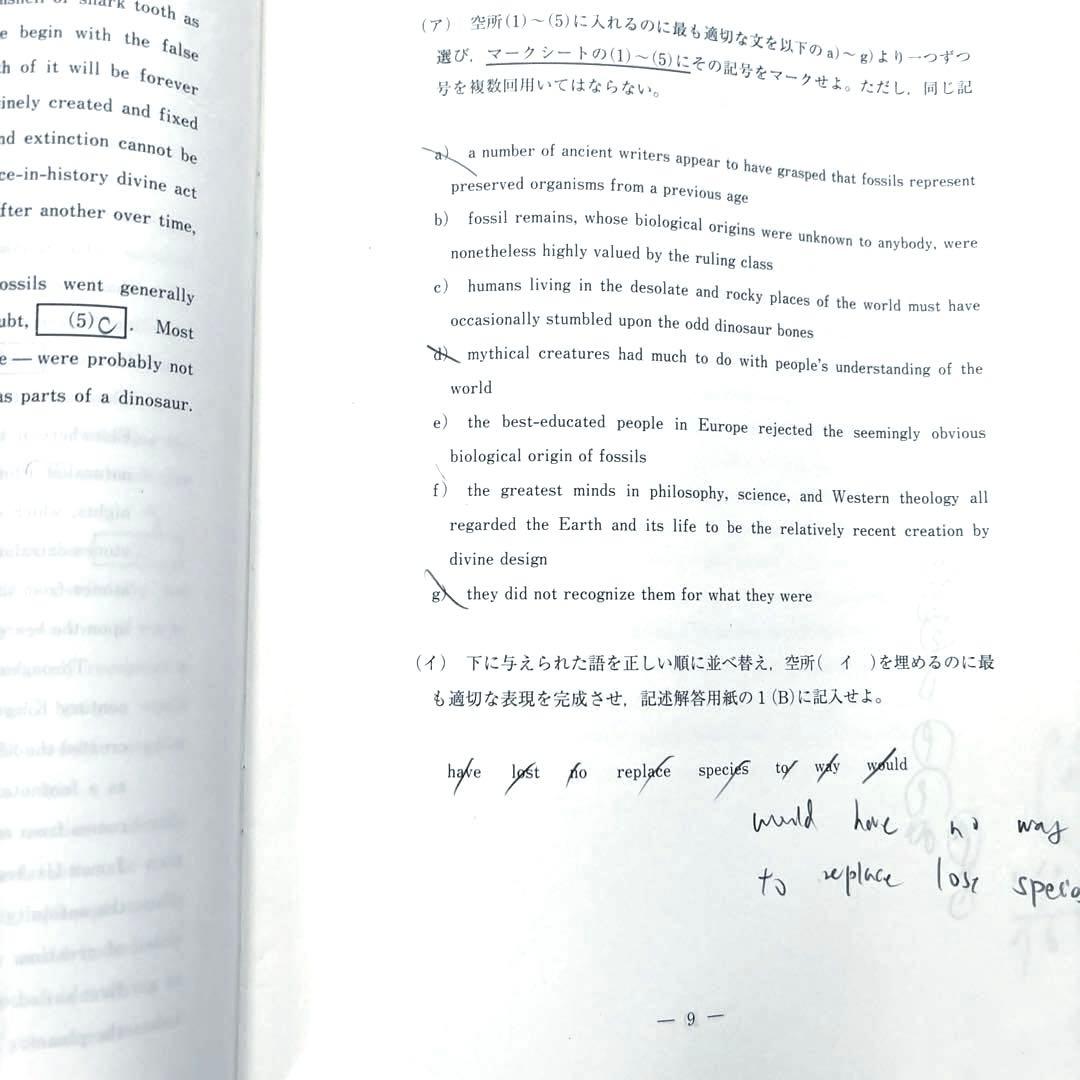 tooth as
e begin with the false
h of it will be forever
inely created and fixed
nd extinction cannot be
ce-in-history divine act
fter another over time,
ossils went generally
ubt, (5) C . Most
e — were probably not
as parts of a dinosaur.
(ア) 空所(1)~(5)に入れるのに最も適切な文を以下の a)~ g)より一つずつ
選び，マークシートの(1)~(5)にその記号をマークせよ。ただし，同じ記
号を複数回用いてはならない。
a) a number of ancient writers appear to have grasped that fossils represent
preserved organisms from a previous age
b) fossil remains, whose biological origins were unknown to anybody, were
nonetheless highly valued by the ruling class
c) humans living in the desolate and rocky places of the world must have
occasionally stumbled upon the odd dinosaur bones
d) mythical creatures had much to do with people's understanding of the
world
e) the best-educated people in Europe rejected the seemingly obvious
biological origin of fossils
f) the greatest minds in philosophy, science, and Western theology all
regarded the Earth and its life to be the relatively recent creation by
divine design
g) they did not recognize them for what they were
(イ) 下に与えられた語を正しい順に並べ替え，空所( イ )を埋めるのに最
も適切な表現を完成させ，記述解答用紙の1(B)に記入せよ。
have lost no replace species to way would
would have no way
to replace lose
— 9 —